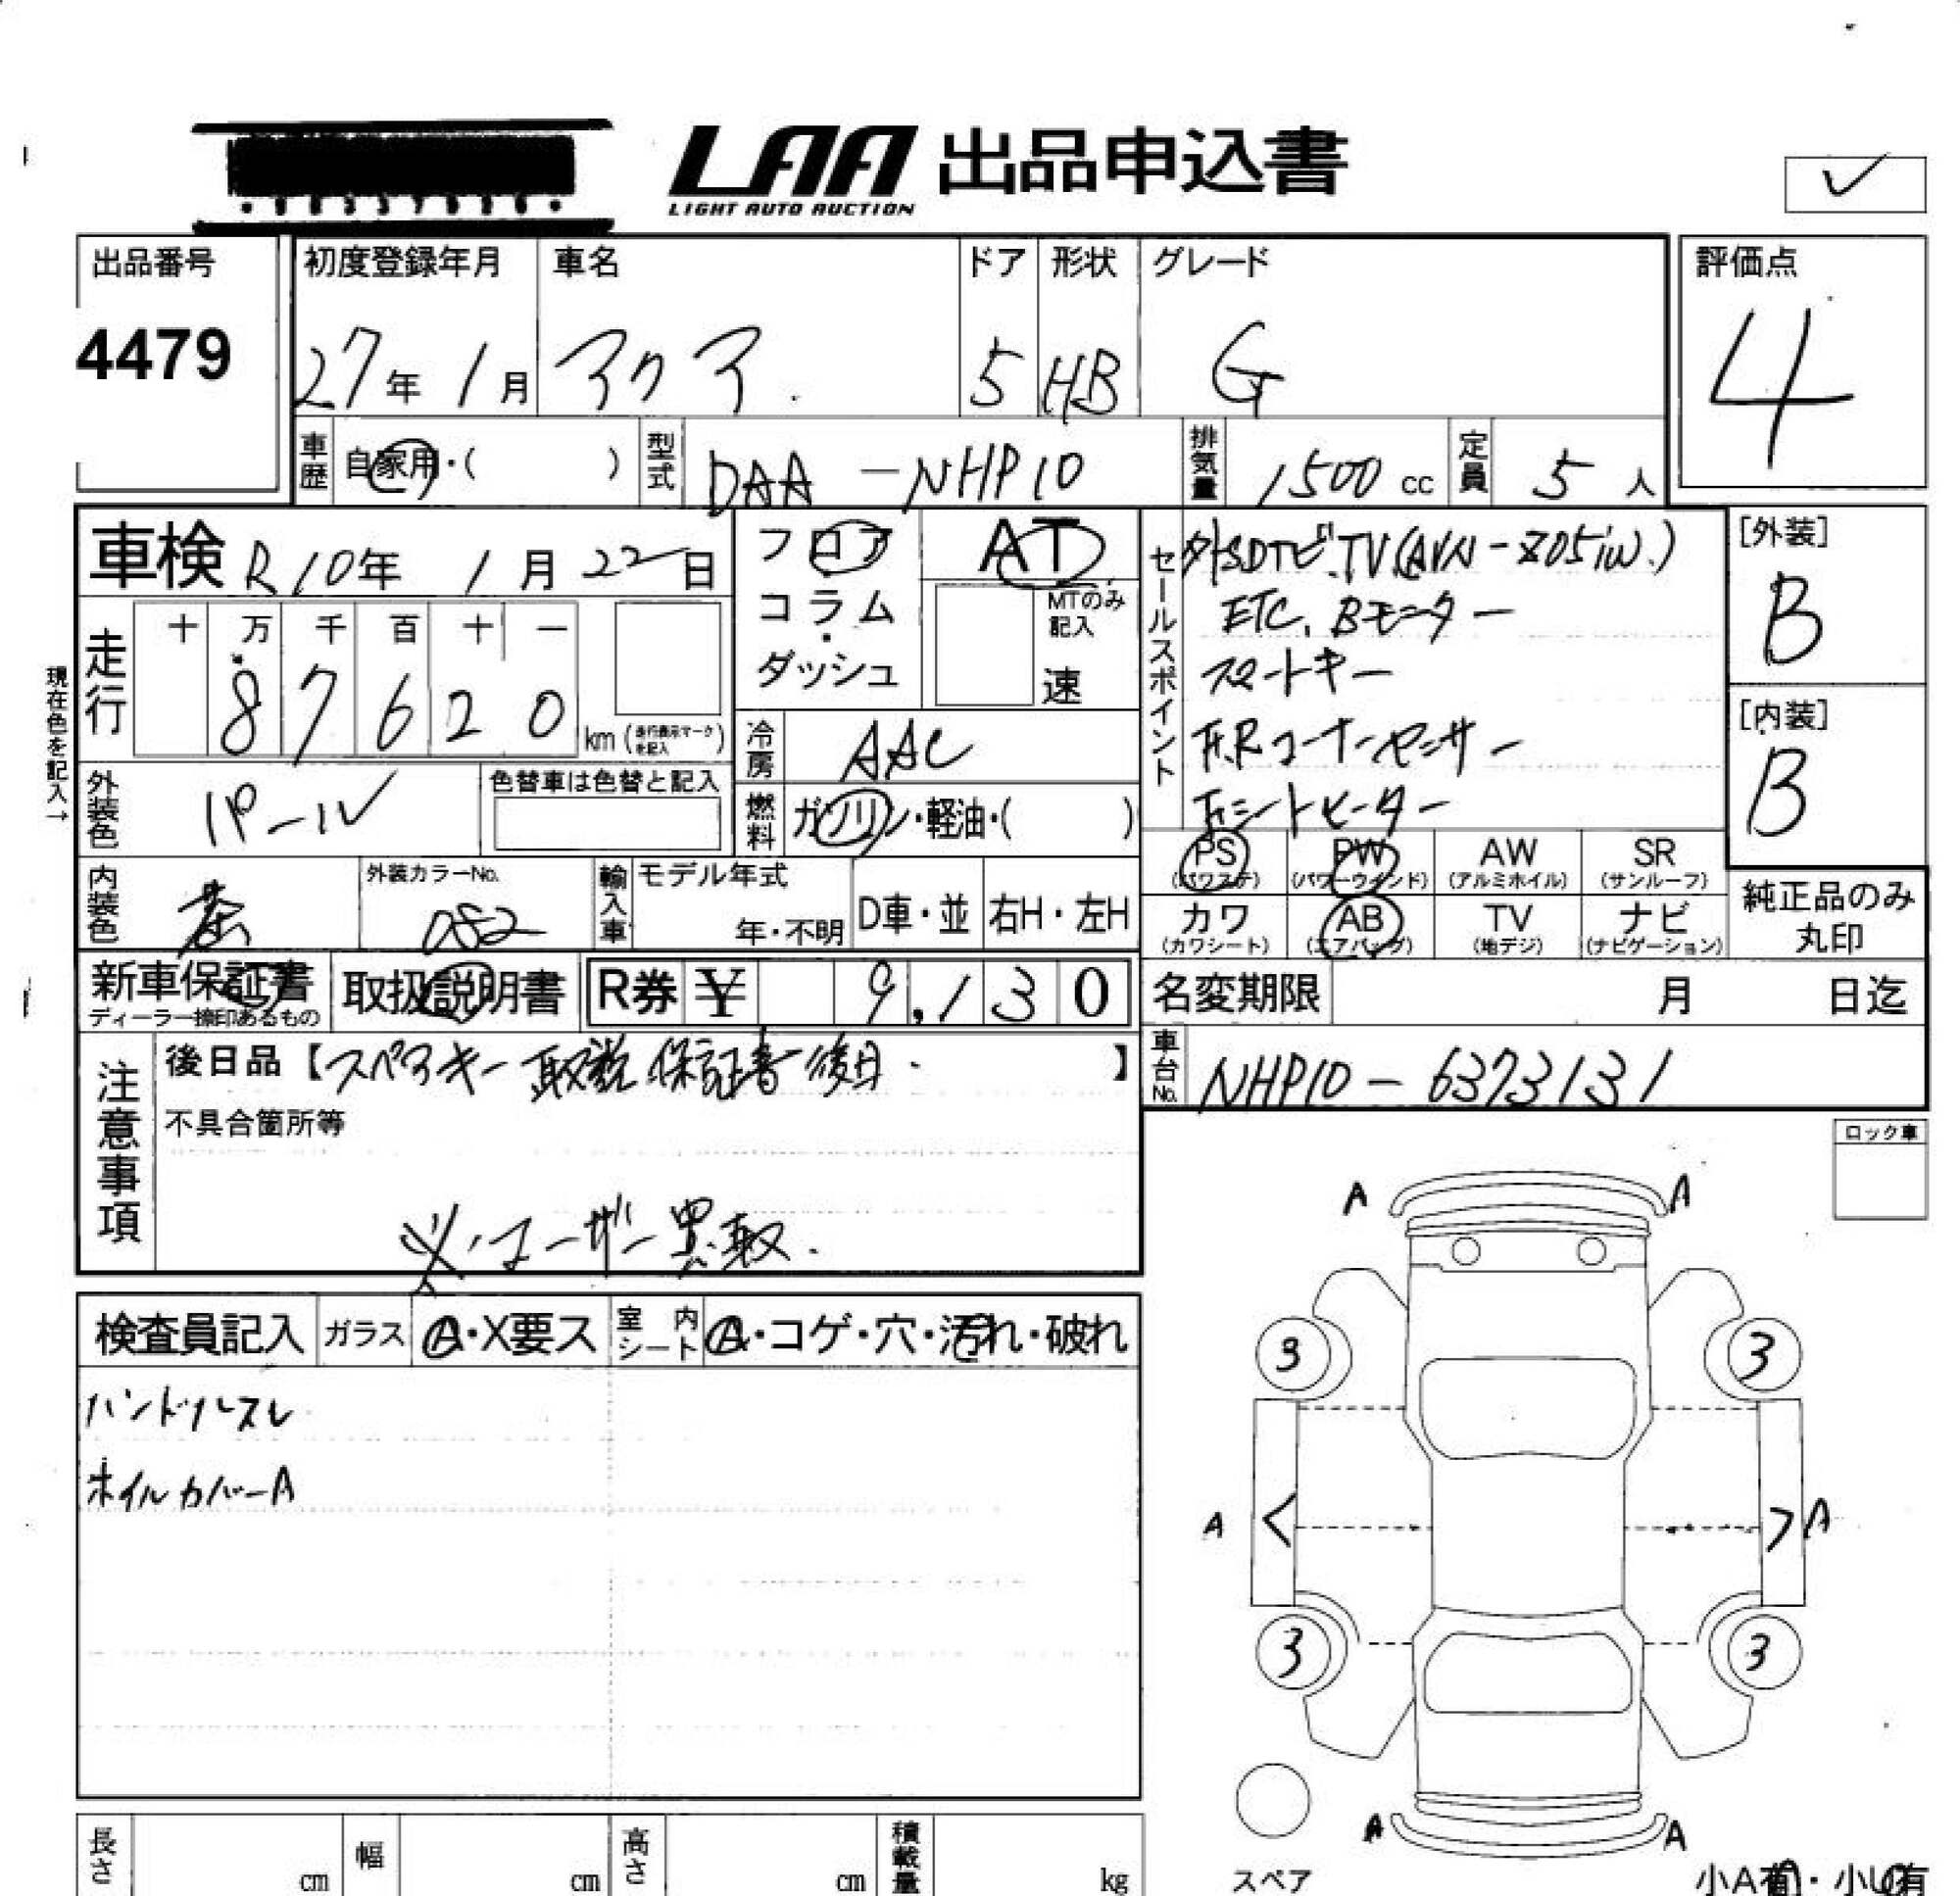 LAA 出品申込書
LIGHT AUTO AUCTION
✓
出品番号
4479
初度登録年月
27年 1月
車名
アクア
ドア
5
形状
HB
グレード
G
評価点
4
車歴 自家用・( )
型式 DAA-NHP10
排気量 1500 cc
定員 5 人
車検 R10年 1月 22日
フロア・コラム・ダッシュ
AT
MTのみ記入
速
セールスポイント
外SDナビ.TV(AVN-Z05iW.)
ETC. Bモニター
スマートキー
F.Rコーナーセンサー
Fシートヒーター
[外装]
B
[内装]
B
現在色を記入→
走行
十 万 千 百 十 一
8 7 6 2 0 km (走行表示マークを記入)
冷房 AAC
外装色 パール
色替車は色替と記入
燃料 ガソリン・軽油・( )
PS (パワステ) PW (パワーウインド) AW (アルミホイル) SR (サンルーフ)
カワ (カワシート) AB (エアバッグ) TV (地デジ) ナビ (ナビゲーション)
純正品のみ丸印
内装色 茶
外装カラーNo. 082
輸入車 モデル年式 年・不明
D車・並 右H・左H
新車保証書
ディーラー捺印あるもの
取扱説明書
R券 ¥ 9,130
名変期限 月 日迄
注意事項
後日品【スペアキー 取説 保証書 後日.】
車台No. NHP10-6373131
不具合箇所等
※.ユーザー買取.
ロック車
検査員記入 ガラス A・X要ス 室内シート A・コゲ・穴・汚れ・破れ
ハンドルスレ
ホイルカバーA
A A
3 3
A < > A
3 3
A A
スペア
小A有・小U有
長さ cm 幅 cm 高さ cm 積載量 kg